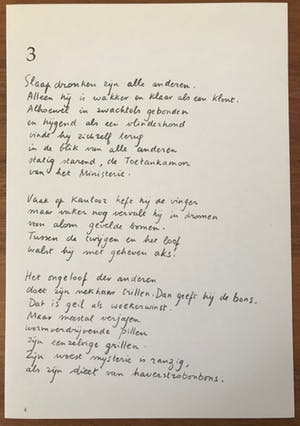 3
Slaapdronken zijn alle anderen.
Alleen hij is wakker en klaar als een klont.
Alhoewel in zwachtels gebonden
en hijgend als een vlinderhond
vindt hij zichzelf terug
in de blik van alle anderen
statig starend, de Toetankamon
van het Ministerie.
Vaak op kantoor heft hij de vinger
maar vaker nog vervalt hij in dromen
van alom gevelde bomen.
Tussen de twijgen en het loof
walst hij met geheven aks.
Het ongeloof der anderen
doet zijn nekhaar trillen. Dan geeft hij de bons.
Dat is geil als woekerwinst.
Maar meestal verjagen
wormverdrijvende pillen
zijn eenzelvige grillen.
Zijn woest mysterie is ranzig,
als zijn dieet van haverstrobonbons.